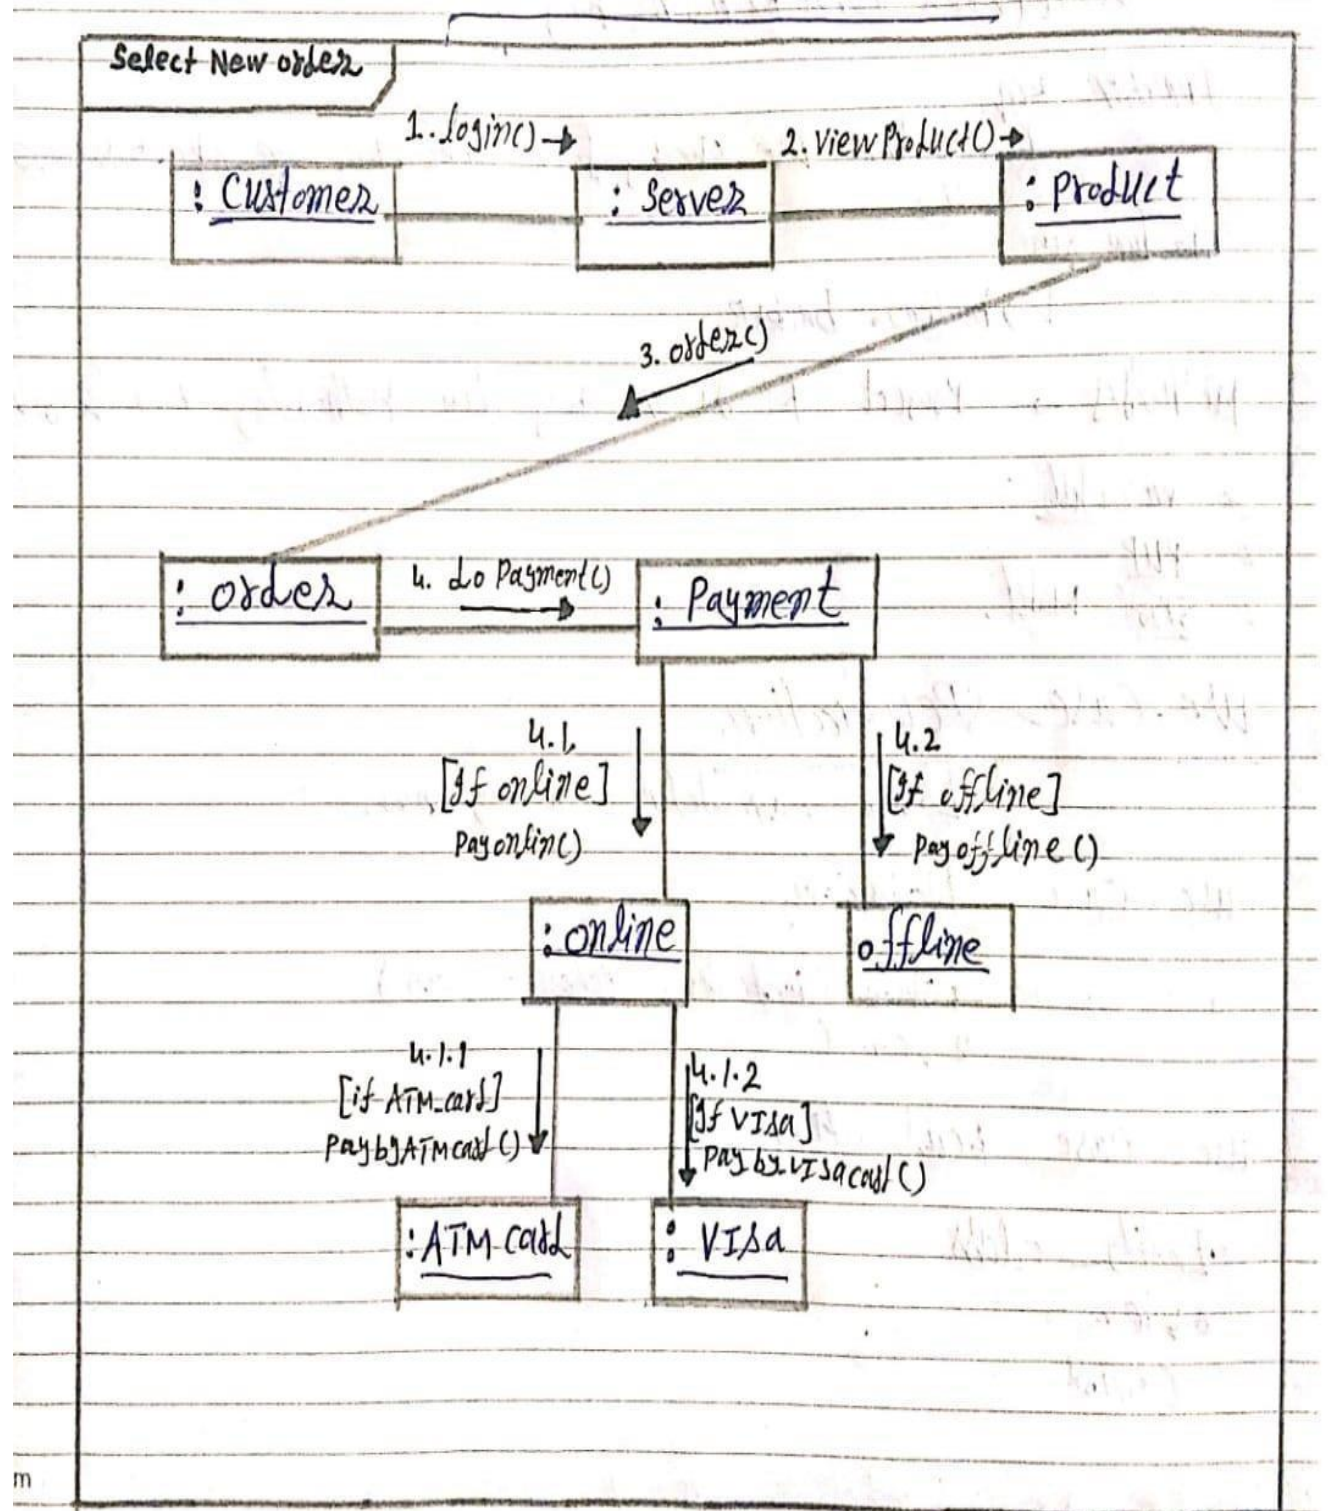 Select New order
1. login() →
2. view Product() →
: Customer
: Server
: Product
3. order()
: order
4. do Payment()
: Payment
4.1.
[If online]
Payonlin()
4.2
[If offline]
Payoffline()
: online
offline
4.1.1
[if ATM_card]
PaybyATMcard()
4.1.2
[If VISa]
Pay by VISacard()
: ATM card
: VISa
m